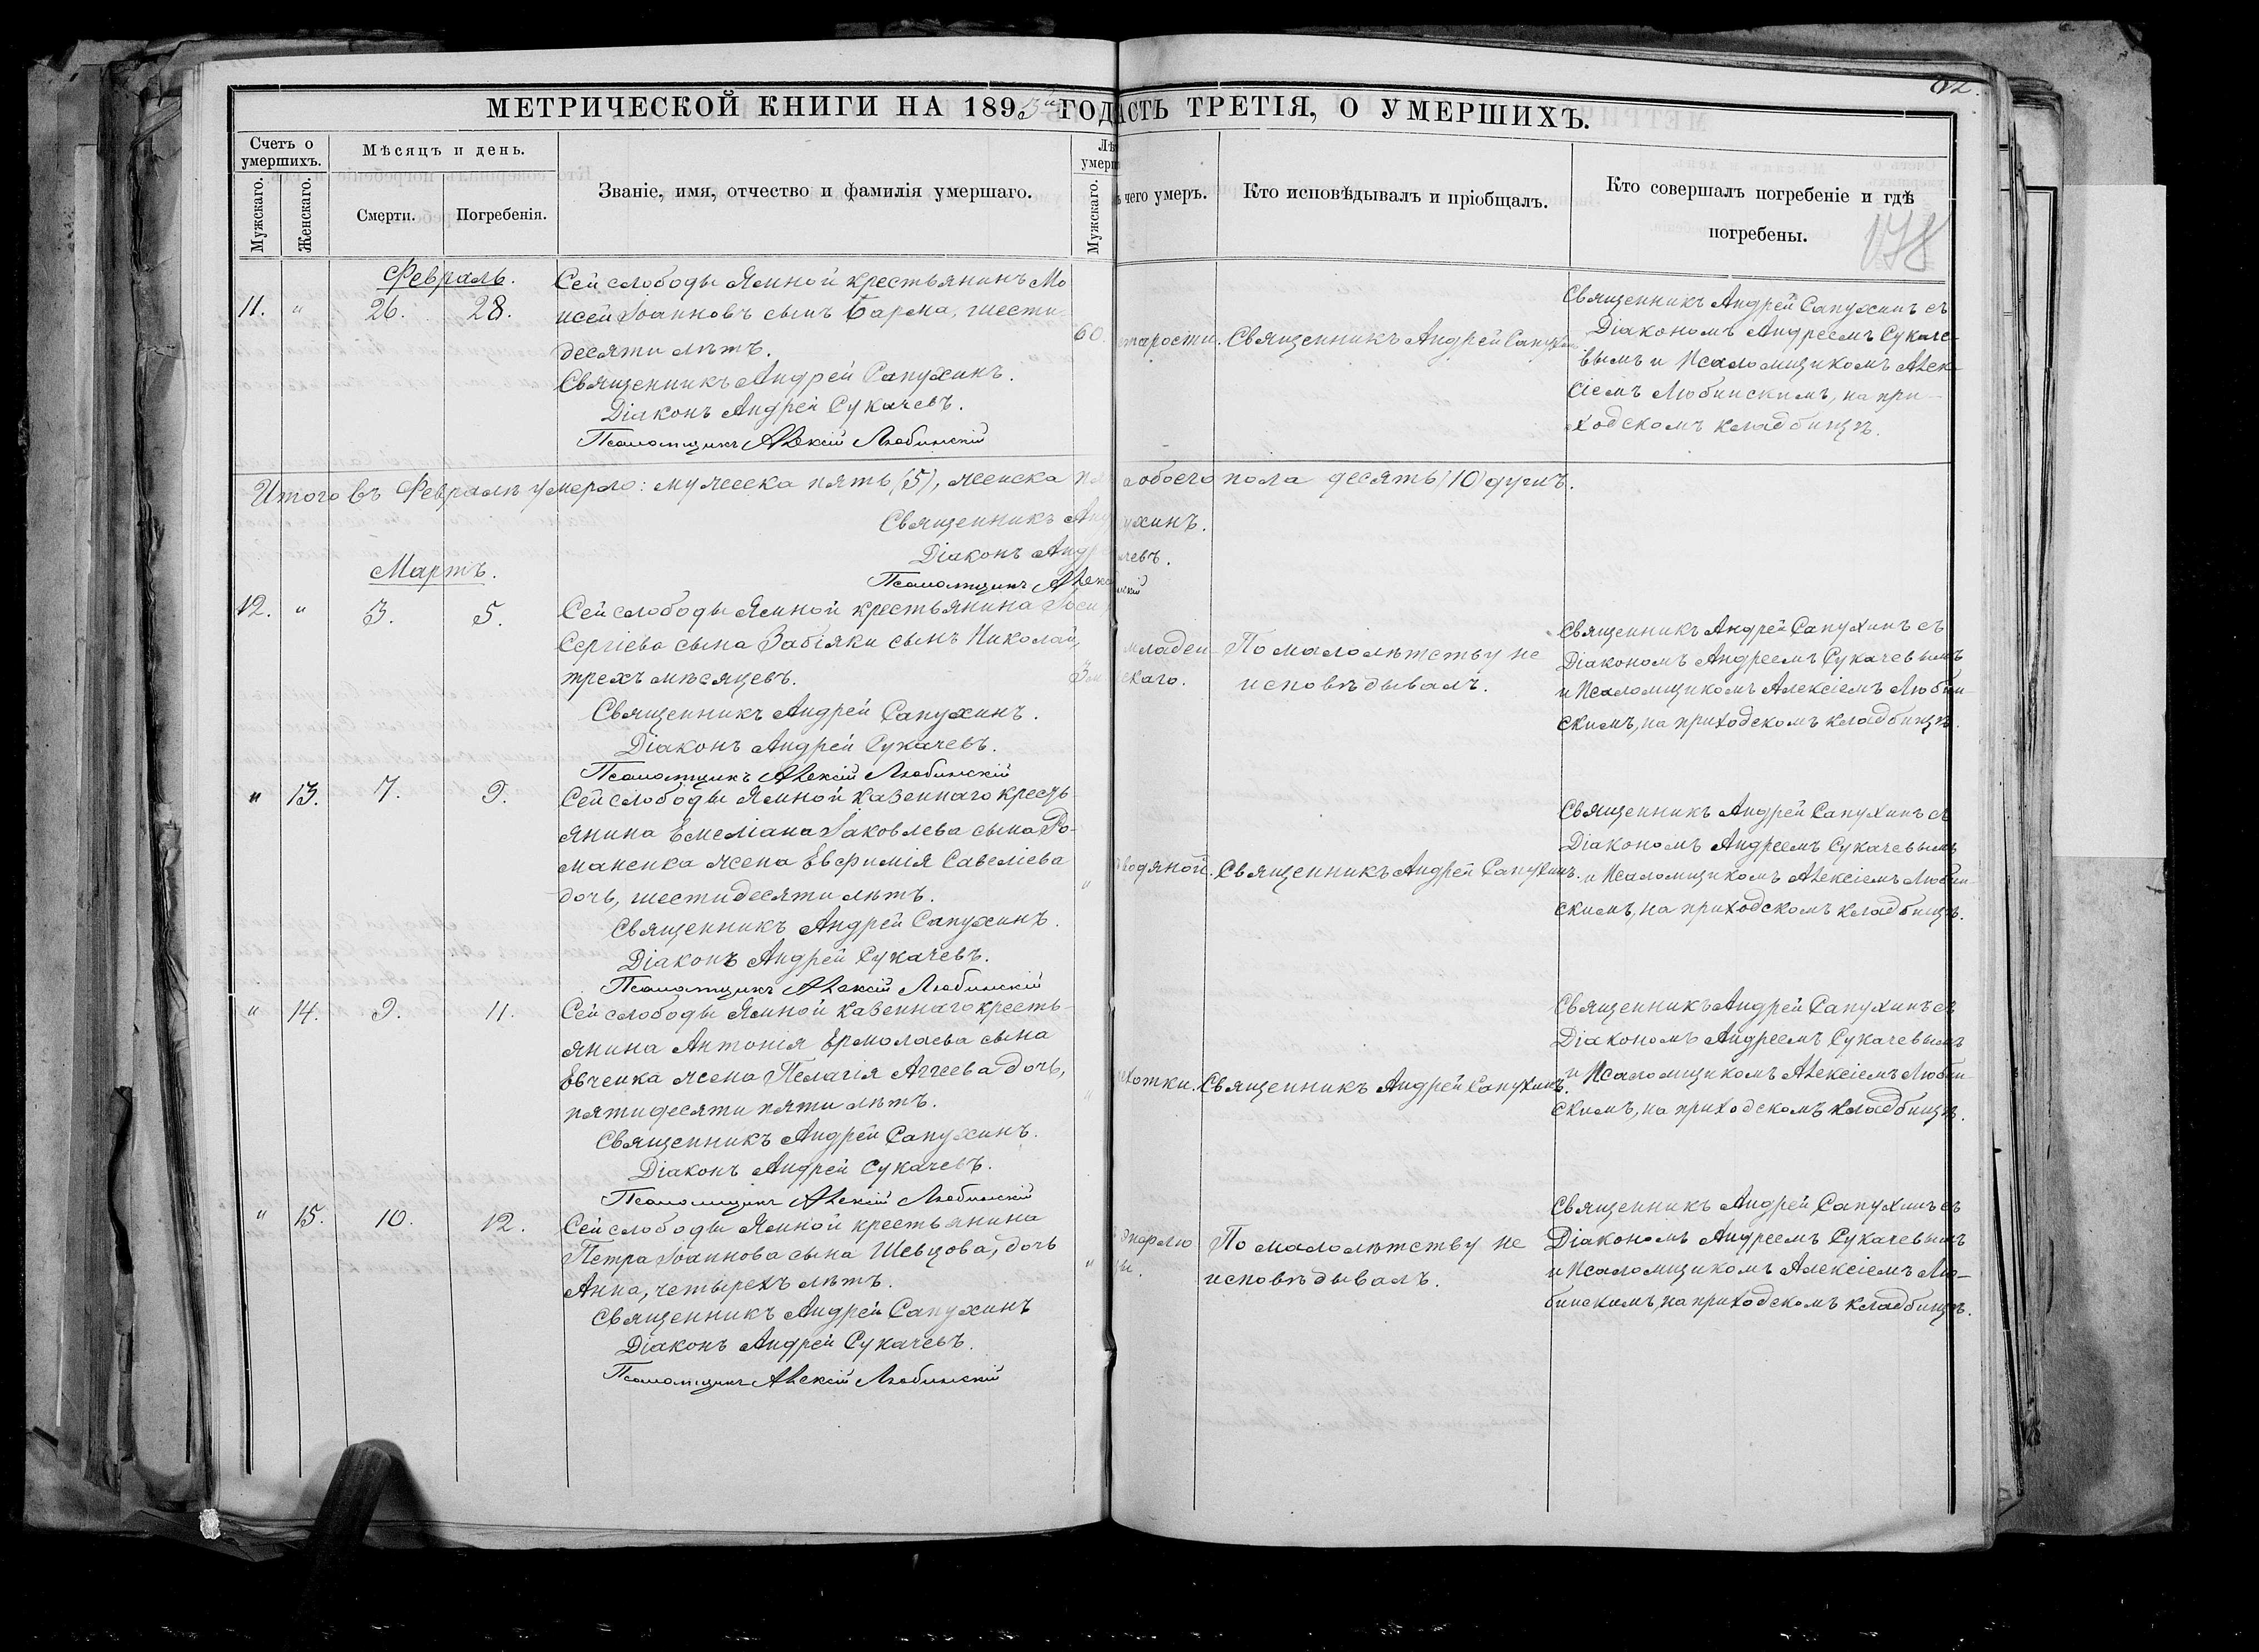 МЕТРИЧЕСКОЙ КНИГИ НА 1893й ГОД
Счетъ о умершихъ.
Мужскаго.
Женскаго.
Мѣсяцъ и день.
Смерти.
Погребенія.
Званіе, имя, отчество и фамилія умершаго.
Лѣ
умерш
Мужскаго.
Февраль.
11. " 26. 28.
Сей слободы Ямной крестьянинъ Мо
исей Іоанновъ сынъ Барма, шести
десяти лѣтъ.
60.
Священникъ Андрей Сапухинъ.
Діаконъ Андрей Сукачевъ.
Псаломщикъ Алексій Любинскій
Итого въ Февралѣ умерло: мужеска пять (5), женска
Священникъ
Діаконъ
Псаломщикъ
Мартъ.
12. " 3. 5.
Сей слободы Ямной крестьянина
Сергіева сына Забіяки сынъ Николай,
трехъ мѣсяцевъ.
Священникъ Андрей Сапухинъ.
Діаконъ Андрей Сукачевъ.
Псаломщикъ Алексій Любинскій
" 13. 7. 9.
Сей слободы Ямной казеннаго кресть
янина Емеліана Іаковлева сына Ро-
маненка жена Евфимія Савеліева
дочь, шестидесяти лѣтъ.
Священникъ Андрей Сапухинъ.
Діаконъ Андрей Сукачевъ.
Псаломщикъ Алексій Любинскій
" 14. 9. 11.
Сей слободы Ямной казеннаго кресть-
янина Антонія Ермолаева сына
Евченка жена Пелагія Аггеева дочь,
пятидесяти пяти лѣтъ.
Священникъ Андрей Сапухинъ.
Діаконъ Андрей Сукачевъ.
Псаломщикъ Алексій Любинскій
" 15. 10. 12.
Сей слободы Ямной крестьянина
Петра Іоаннова сына Шевцова, дочь
Анна, четырехъ лѣтъ.
Священникъ Андрей Сапухинъ
Діаконъ Андрей Сукачевъ.
Псаломщикъ Алексій Любинскій
АСТЬ ТРЕТІЯ, О УМЕРШИХЪ.
чего умеръ.
Кто исповѣдывалъ и пріобщалъ.
Кто совершалъ погребеніе и гдѣ
погребены.
178
старости. Священникъ Андрей Сапухинъ
Священникъ Андрей Сапухинъ съ
Діакономъ Андреемъ Сукаче-
вымъ и Псаломщикомъ Алек-
сіемъ Любинскимъ, на при-
ходскомъ кладбищѣ.
а обоего пола десять (10) душъ.
ухинъ.
ачевъ.
нскій
младен-
скаго.
По малолѣтству не
исповѣдывалъ.
Священникъ Андрей Сапухинъ съ
Діакономъ Андреемъ Сукачевымъ
и Псаломщикомъ Алексіемъ Любин-
скимъ, на приходскомъ кладбищѣ.
водяной. Священникъ Андрей Сапухинъ.
Священникъ Андрей Сапухинъ съ
Діакономъ Андреемъ Сукачевымъ
и Псаломщикомъ Алексіемъ Любин-
скимъ, на приходскомъ кладбищѣ.
хотки. Священникъ Андрей Сапухинъ.
Священникъ Андрей Сапухинъ съ
Діакономъ Андреемъ Сукачевымъ
и Псаломщикомъ Алексіемъ Любин-
скимъ, на приходскомъ кладбищѣ.
По малолѣтству не
исповѣдывалъ.
Священникъ Андрей Сапухинъ съ
Діакономъ Андреемъ Сукачевымъ
и Псаломщикомъ Алексіемъ Лю-
бинскимъ, на приходскомъ кладбищѣ.